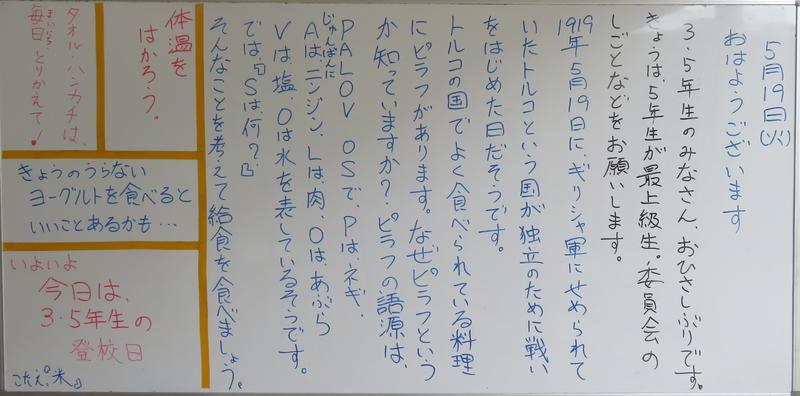 5月19日(火)
おはようございます
3・5年生のみなさん、おひさしぶりです。
きょうは、5年生が最上級生。委員会の
しごとなどをお願いします。
1919年5月19日に、ギリシャ軍にせめられて
いたトルコという国が独立のために戦い
をはじめた日だそうです。
トルコの国でよく食べられている料理
にピラフがあります。なぜピラフという
か知っていますか?ピラフの語源は、
PALOV OSで、Pは、ネギ、
じゅんばんに
Aは、ニンジン、Lは、肉、Oは、あぶら
Vは、塩、Oは水を表しているそうです。
では、『Sは、何?』
そんなことを考えて給食を食べましょう。
体温を
はかろう。
タオル・ハンカチは、
まいにち
毎日、とりかえて!
きょうのうらない
ヨーグルトを食べると
いいことあるかも…
いよいよ
今日は、
3・5年生の
登校日
こたえ『米』